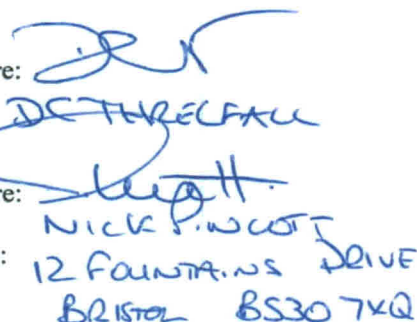 re:
DC THRELFALL
re:
NICK
: 12 FOUNTAINS DRIVE
BRISTOL BS30 7XQ